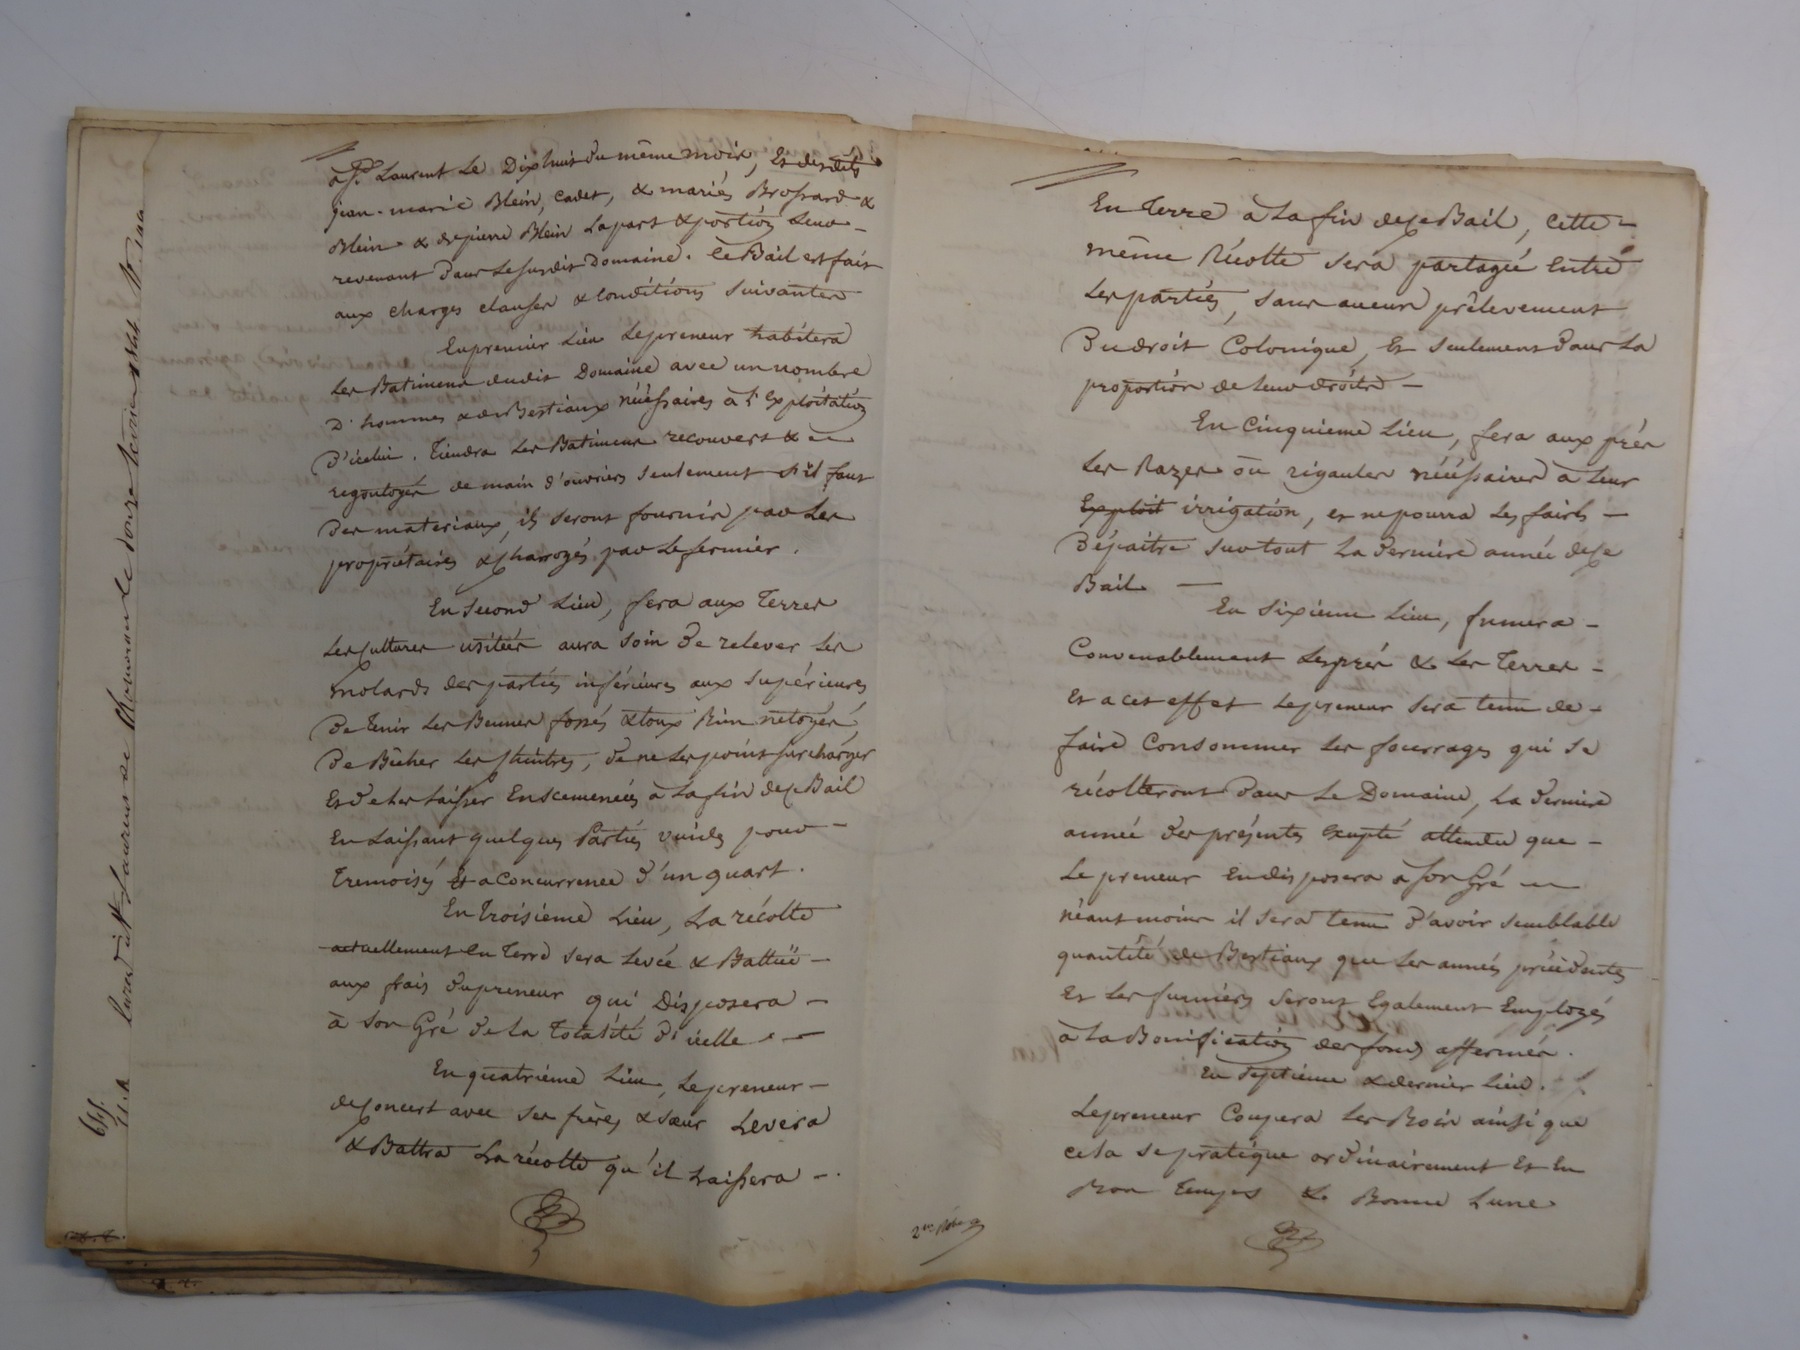 à St. Laurent Le Dix huit du même mois, Et desdits
jean-marie Blein, cadet, & mariés Brossard &
Blein & de pierre Blein La part & portion Leur
revenant dans Le susdit Domaine. Ce Bail est fait
aux charges clauses & Conditions suivantes
En premier Lieu Le preneur habitera
Les Batimens dudit Domaine avec un nombre
D'hommes & de Bestiaux nécéssaires à l'Exploitation
D'icelui. Tiendra Les Batimens recouvers &
regoutoyés de main d'ouvriers seulement s'il faut
Des materiaux, ils seront fournis par Les
propriétaires & charroyés par Le fermier.
En second Lieu, fera aux Terres
Les cultures usitées aura soin De relever Les
molards des parties inférieures aux supérieures
De Tenir Les fossés & Bien netoyés,
De Bêcher Les, De ne Les point surcharger
Et De Les Laisser Enscemencées à La fin de ce Bail
En Laissant quelques Parties vuides pour
Tremoisés a Concurrence D'un quart.
En Troisième Lieu, La récolte
actuellement En Terre sera Levée & Battuë
aux frais Du preneur qui Disposera
à son Gré De La Totalité D'icelle
En quatrième Lieu, Le preneur
de concert avec ses frères & sœur Levera
& Battra La récolte qu'il Laissera
En Terre à La fin de ce Bail, Cette
même Récolte sera partagée Entre
Les parties, sans aucun prélevement
Du droit Colonique, Et seulement Dans La
proportion de Leurs droits
En Cinquieme Lieu, fera aux prés
Les Razes ou rigaules nécéssaires à Leur
Exploit irrigation, et ne pourra Les faire
Dépaitre surtout La Derniere année de ce
Bail
En Sixieme Lieu, fumera
Convenablement Les prés & Les Terres
Et a cet effet Le preneur sera tenu de
faire Consommer Les fourrages qui se
récolteront Dans Le Domaine, La Derniere
année Des présentes Excepté attendu que
Le preneur En disposera a son Gré
néantmoins il sera tenu D'avoir semblable
quantité de Bestiaux que Les années précédentes
Et Les fumiers seront Egalement Employés
à La Bonification des fonds affermés.
En Septieme & dernier Lieu.
Le preneur Coupera Les Bois ainsi que
cela se pratique ordinairement Et En
Bon Temps & Bonne Lune